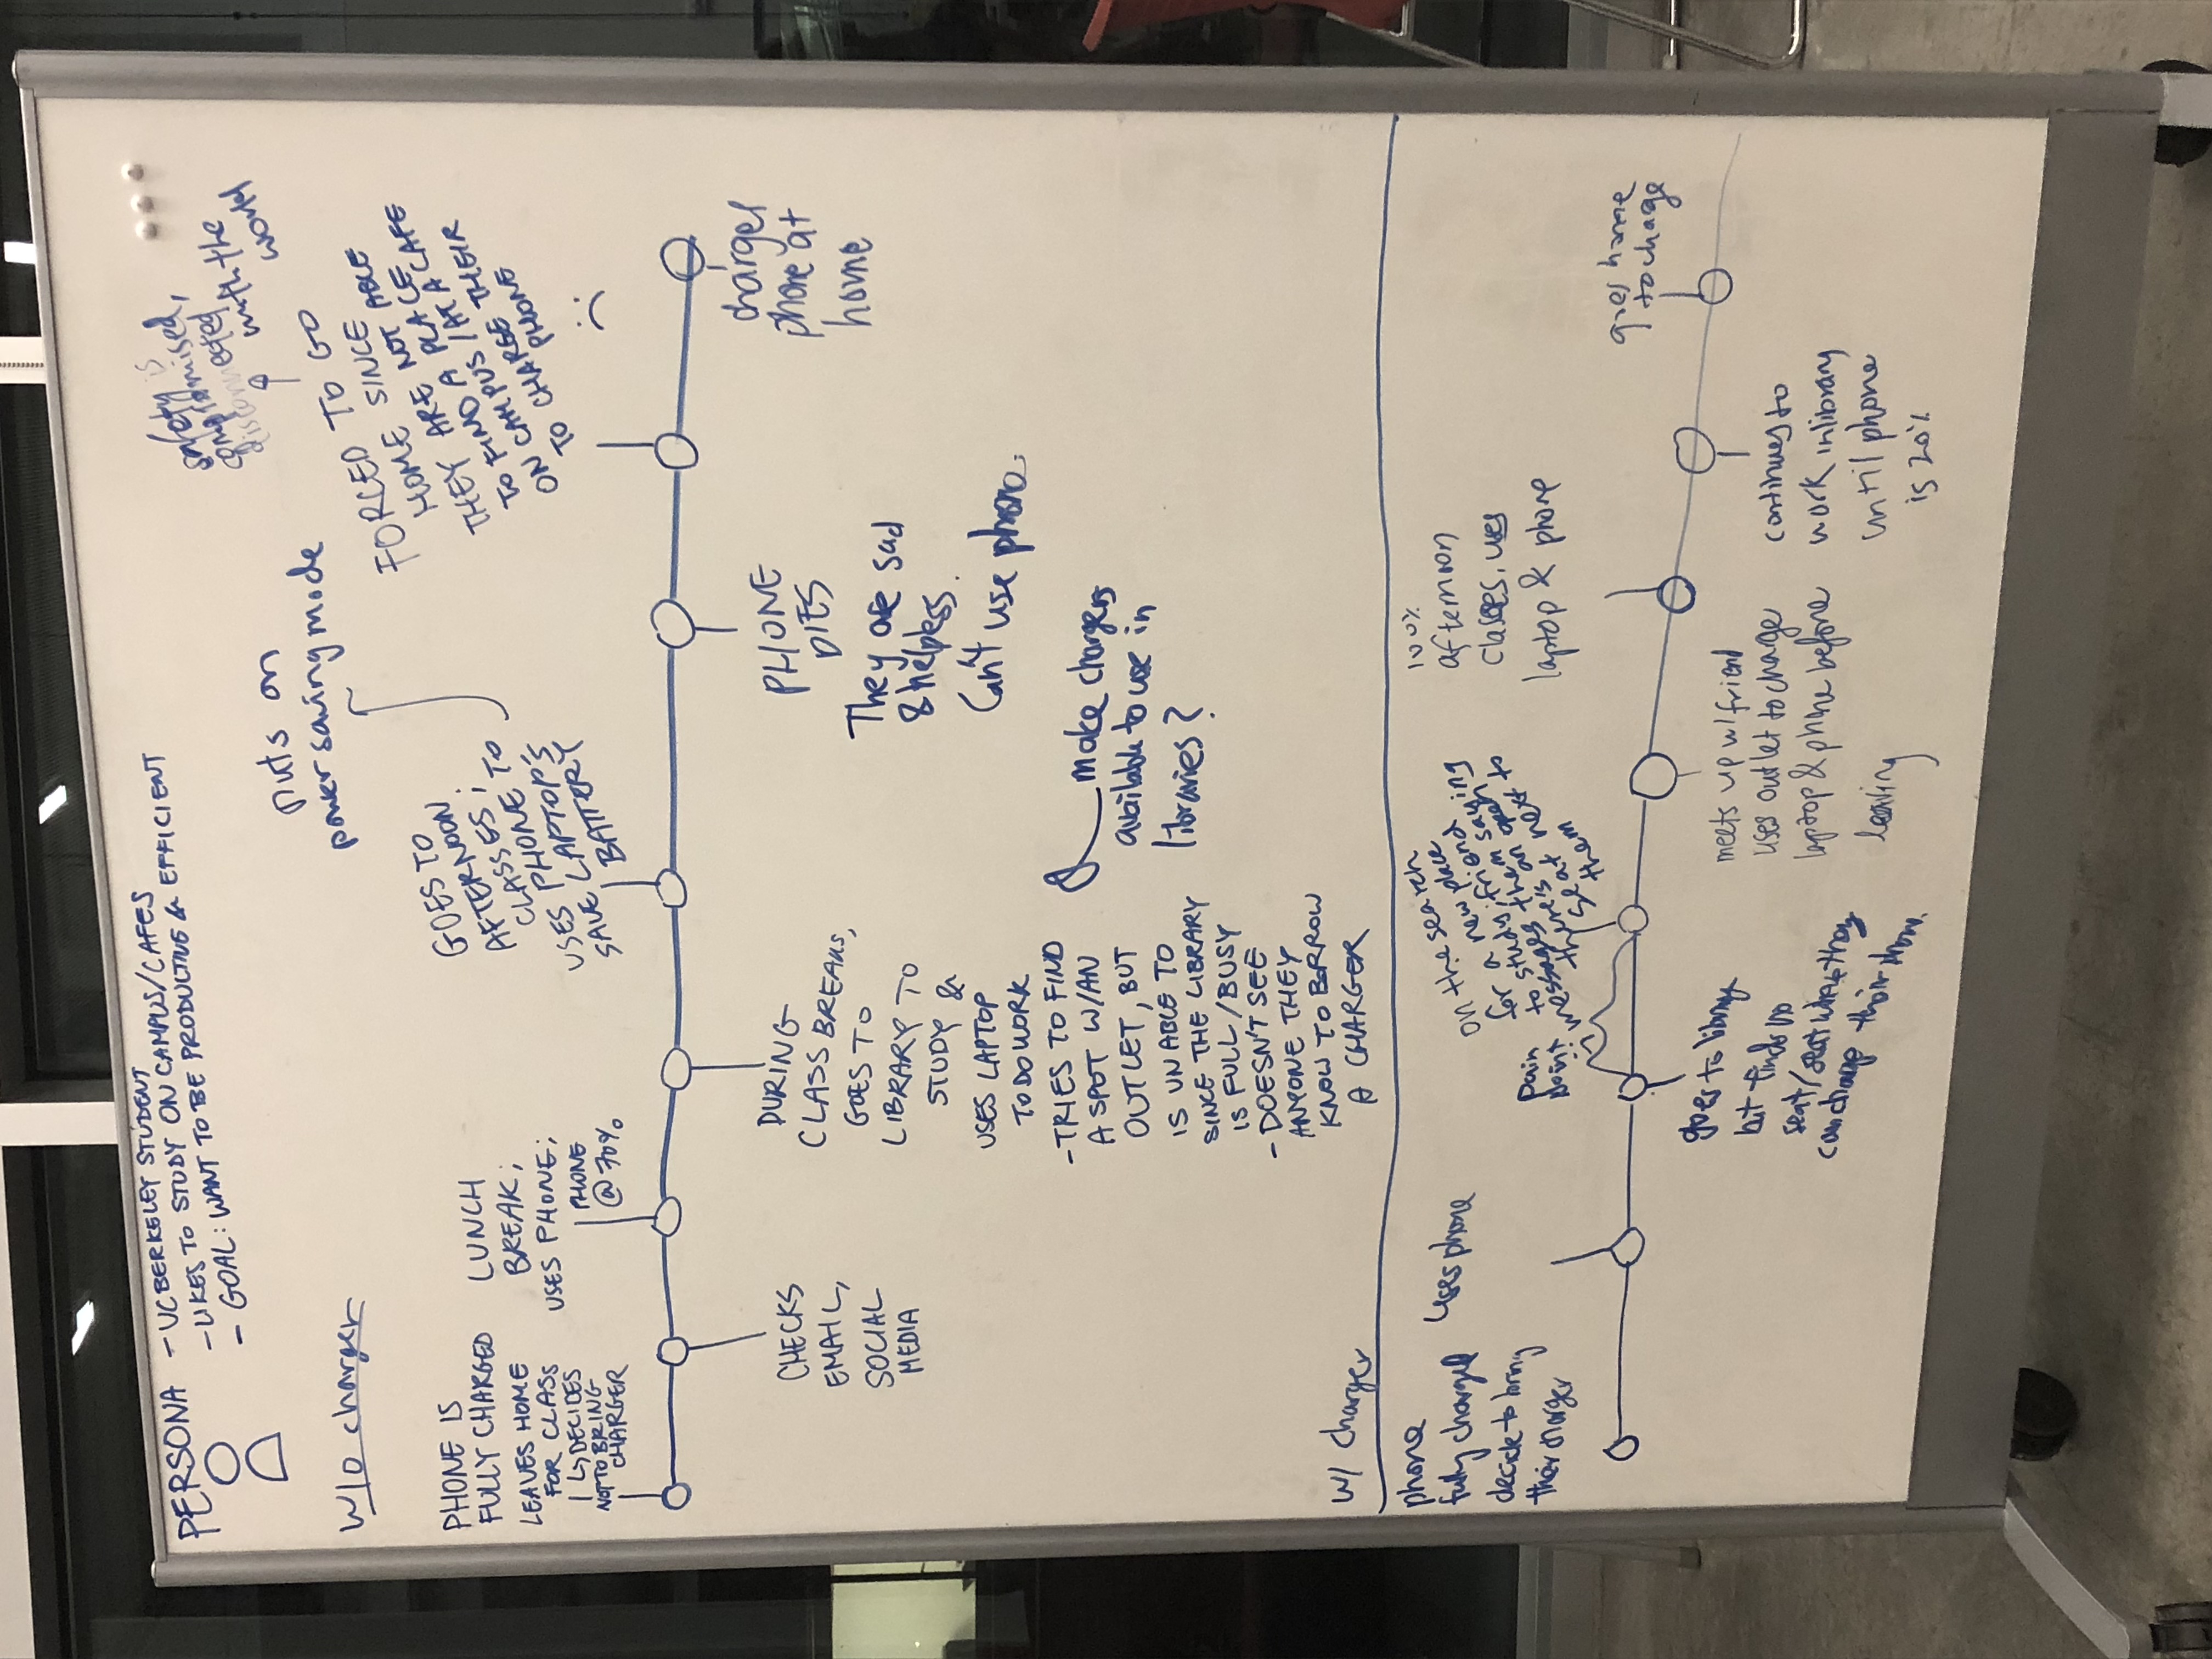 PERSONA
- UC BERKELEY STUDENT
- LIKES TO STUDY ON CAMPUS/CAFES
- GOAL: WANT TO BE PRODUCTIVE & EFFICIENT
W/O charger
PHONE IS
FULLY CHARGED
LEAVES HOME
FOR CLASS
↳ DECIDES
NOT TO BRING
CHARGER
CHECKS
EMAIL,
SOCIAL
MEDIA
LUNCH
BREAK;
USES PHONE;
PHONE
@ 70%
DURING
CLASS BREAKS,
GOES TO
LIBRARY TO
STUDY &
USES LAPTOP
TO DO WORK
- TRIES TO FIND
A SPOT W/AN
OUTLET, BUT
IS UNABLE TO
SINCE THE LIBRARY
IS FULL/BUSY
- DOESN'T SEE
ANYONE THEY
KNOW TO BORROW
A CHARGER
make chargers
available to use in
libraries?
GOES TO
AFTERNOON
CLASSES;
USES PHONE TO
SAVE LAPTOP'S
BATTERY
puts on
power saving mode
PHONE
DIES
They are sad
& helpless.
Can't use phone.
FORCED TO GO
HOME SINCE
THEY ARE NOT ABLE
TO FIND A PLACE
ON CAMPUS/AT A CAFE
TO CHARGE THEIR
PHONE
safety is
compromised,
disconnected
with the
world
charges
phone at
home
W/ charger
phone
fully charged
decide to bring
their charger
uses phone
goes to library
but finds no
seat/seat where they
can charge their phone.
pain
point
on the search
for a new place
to study; friend
messages them saying
there's an open
seat next to
them
meets up w/ friend
uses outlet to charge
laptop & phone before
leaving
100%
afternoon
classes, uses
laptop & phone
continues to
work in library
until phone
is 20%
goes home
to chage